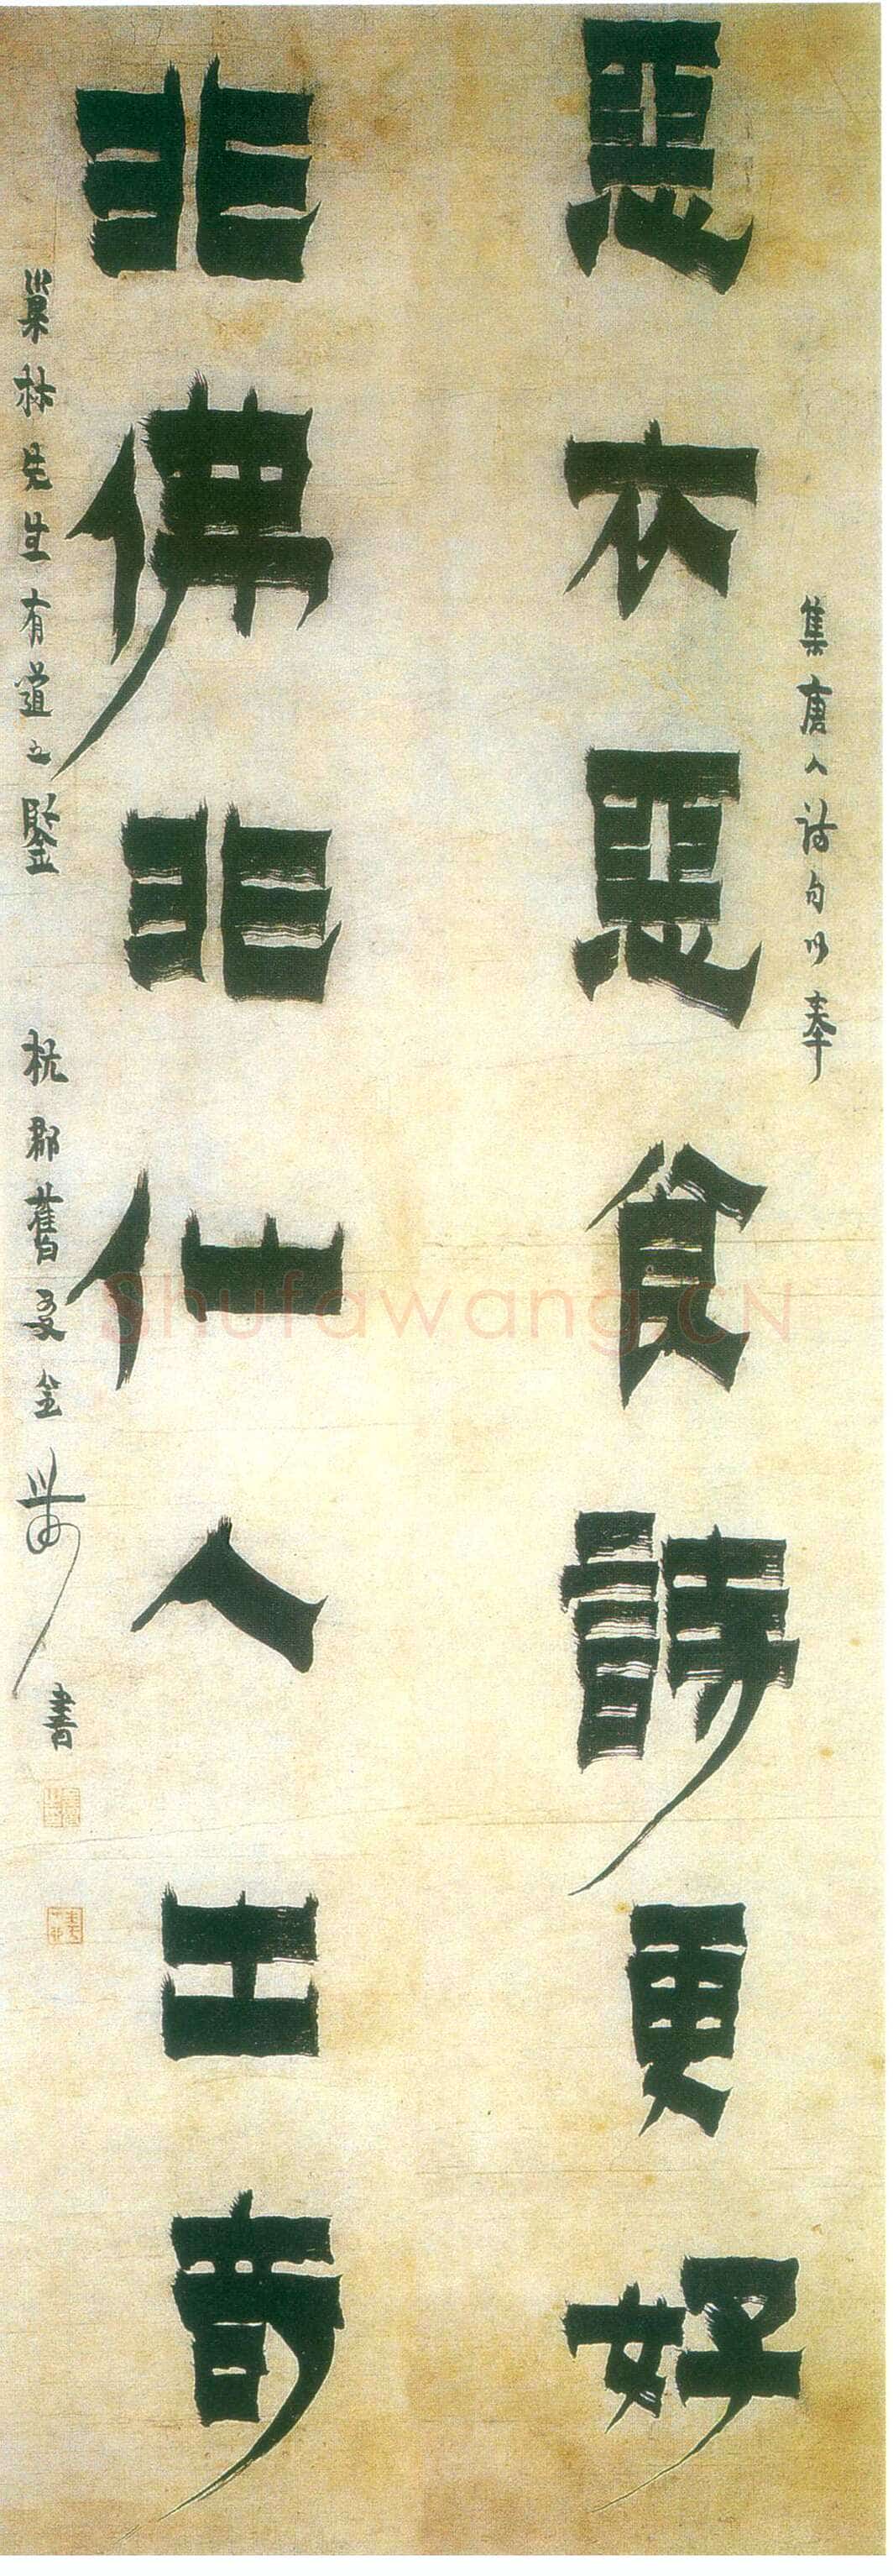 惡衣惡食詩更好
集唐人詩句以奉
非佛非仙人出奇
巢林先生有道之鑒 杭郡舊友金農書
Shufawang.CN